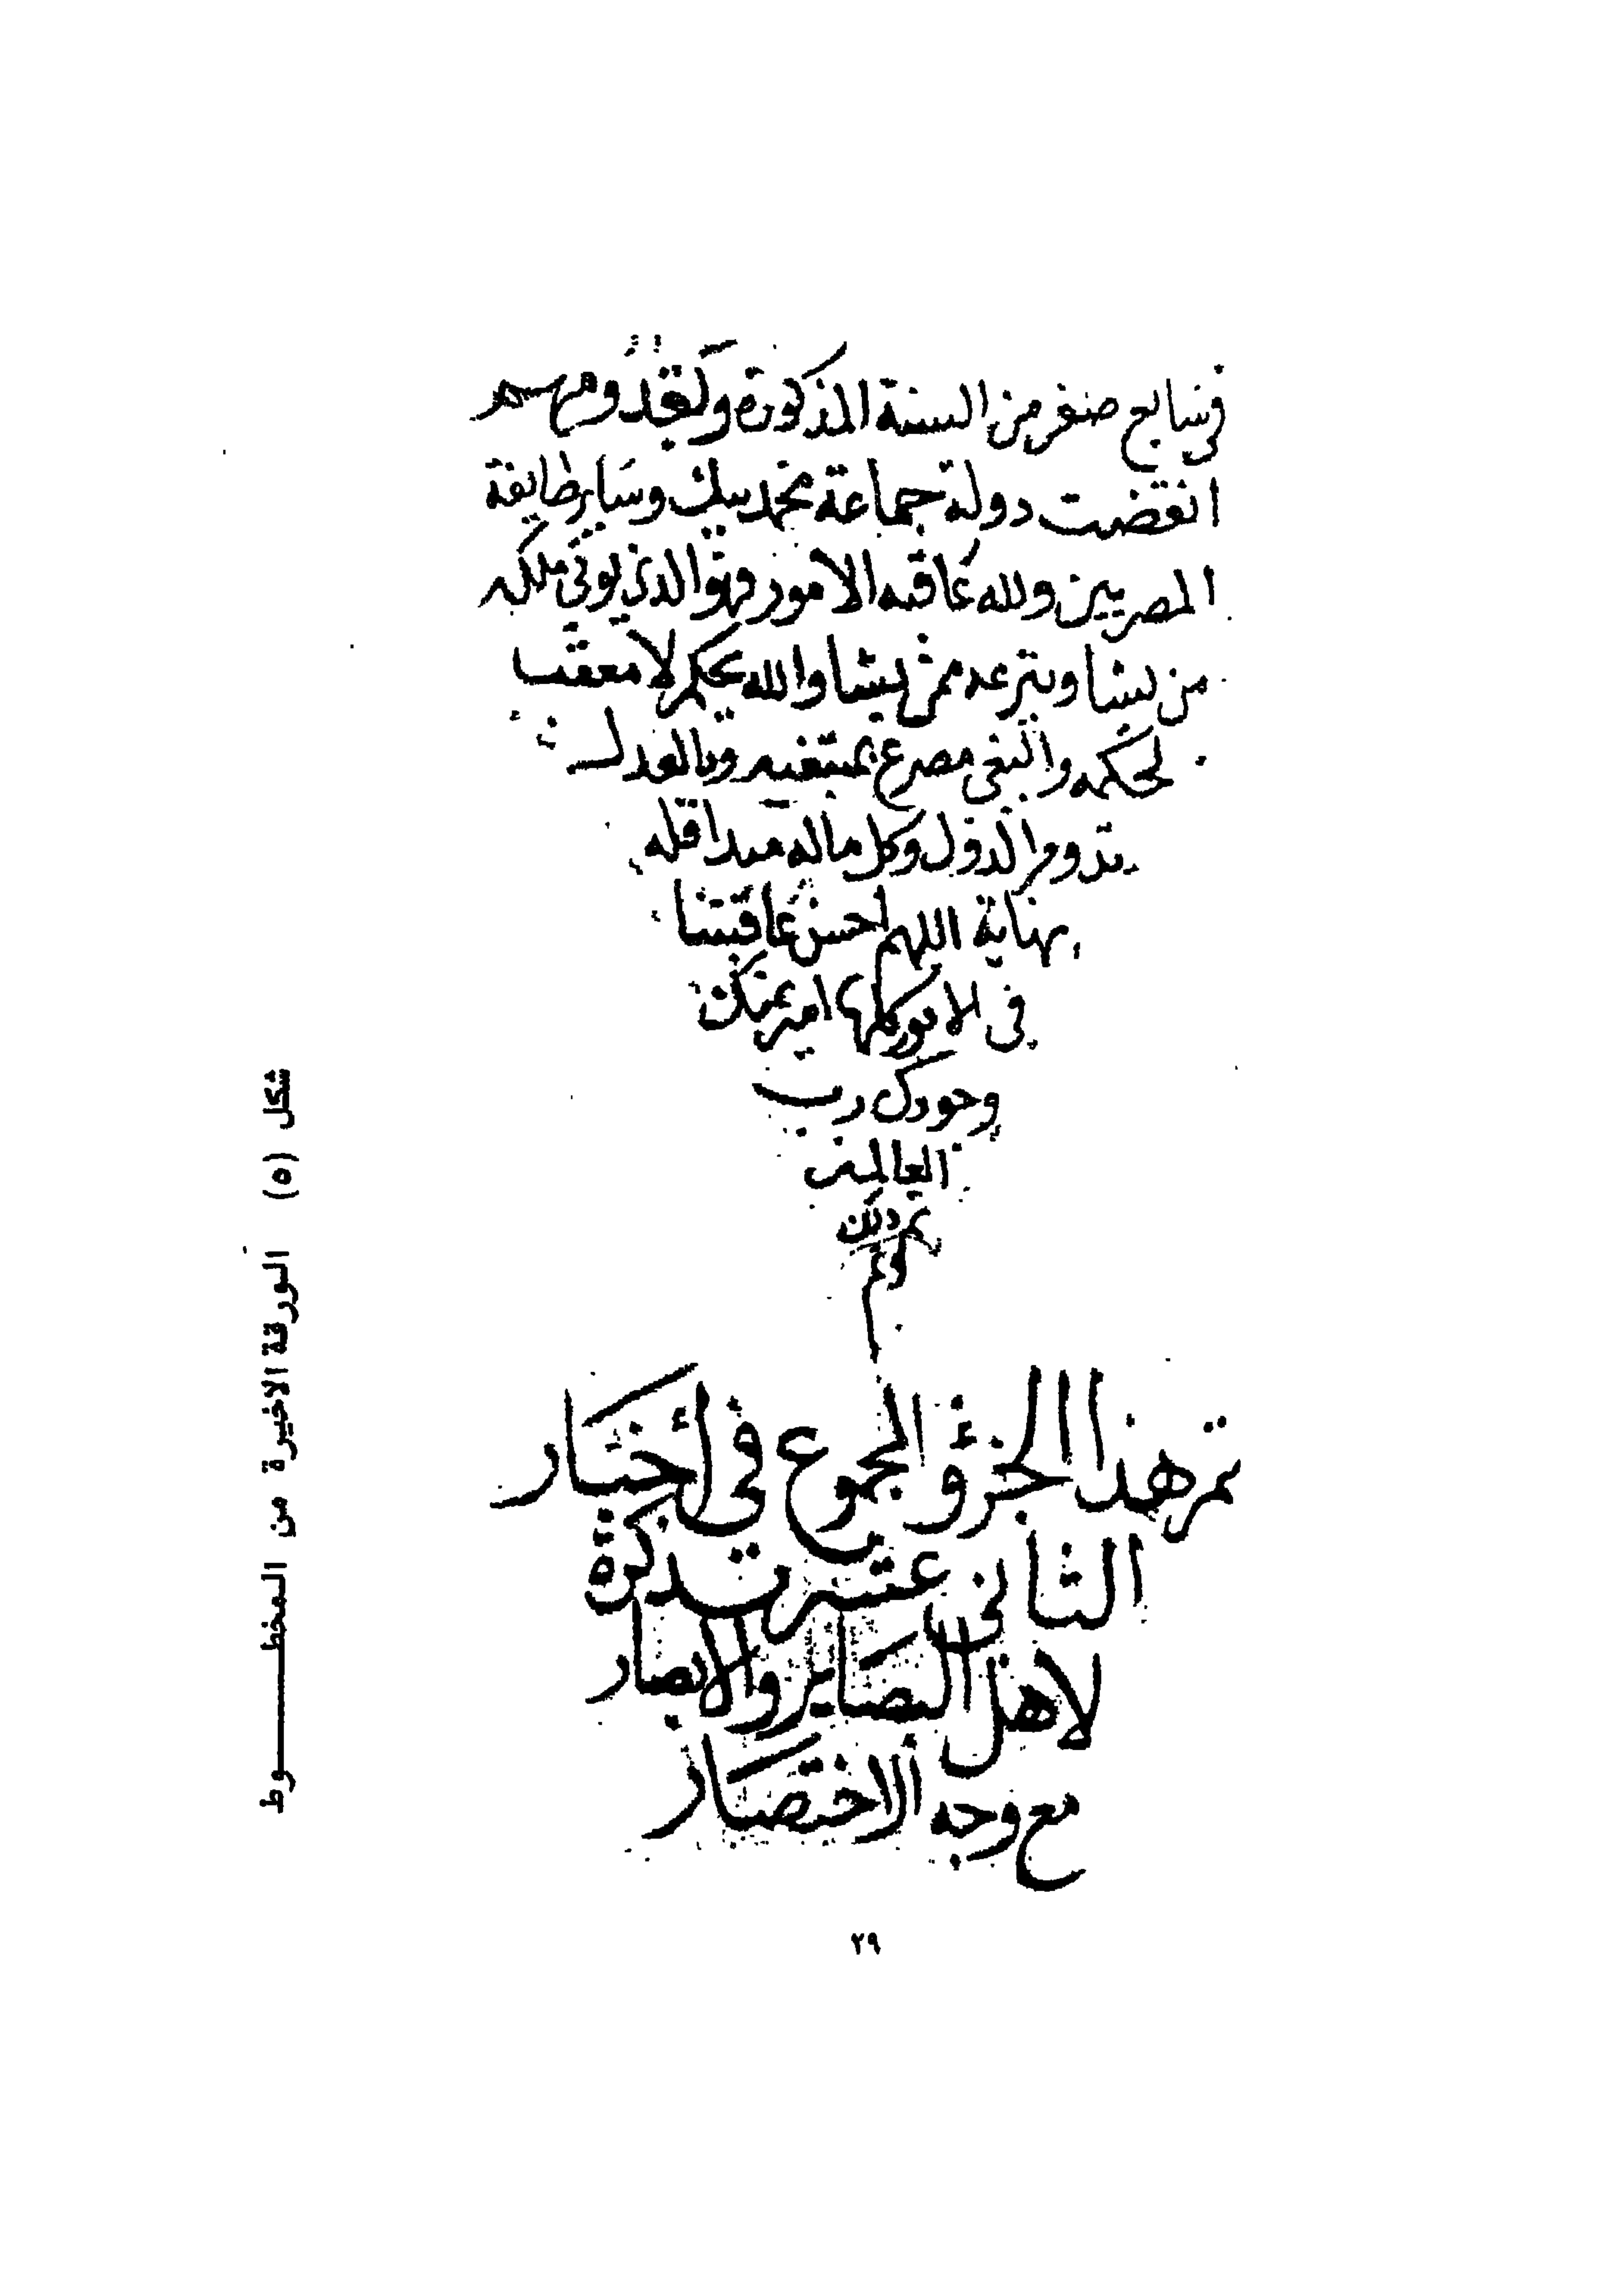 في سابع صفر من السنة المذكورة وبقدومهم
انقضت دولة جماعة محمد بيك وساير طايفة
المصريين ولله عاقبه الامور وهو الذي يوتي ملكه
من يشا وينزعه ممن يشا والله يحكم لا معقب
لحكمه والبغي مصرع بمبتغيه وبالعدل
تدوم الدول وكل ماله مبدا فله
نهاية اللهم احسن عاقبتنا
في الامور كلها امين بمنك
وجودك رب
العالمين
تم ذلك
تم هذا الجزؤ المجموع في أخبار
الثاني عشر تذكرة
لاهل البصاير والابصار
مع وجه الاختصار
شكل (٥) الورقة الاخيرة من المخطـــوط
٢٩